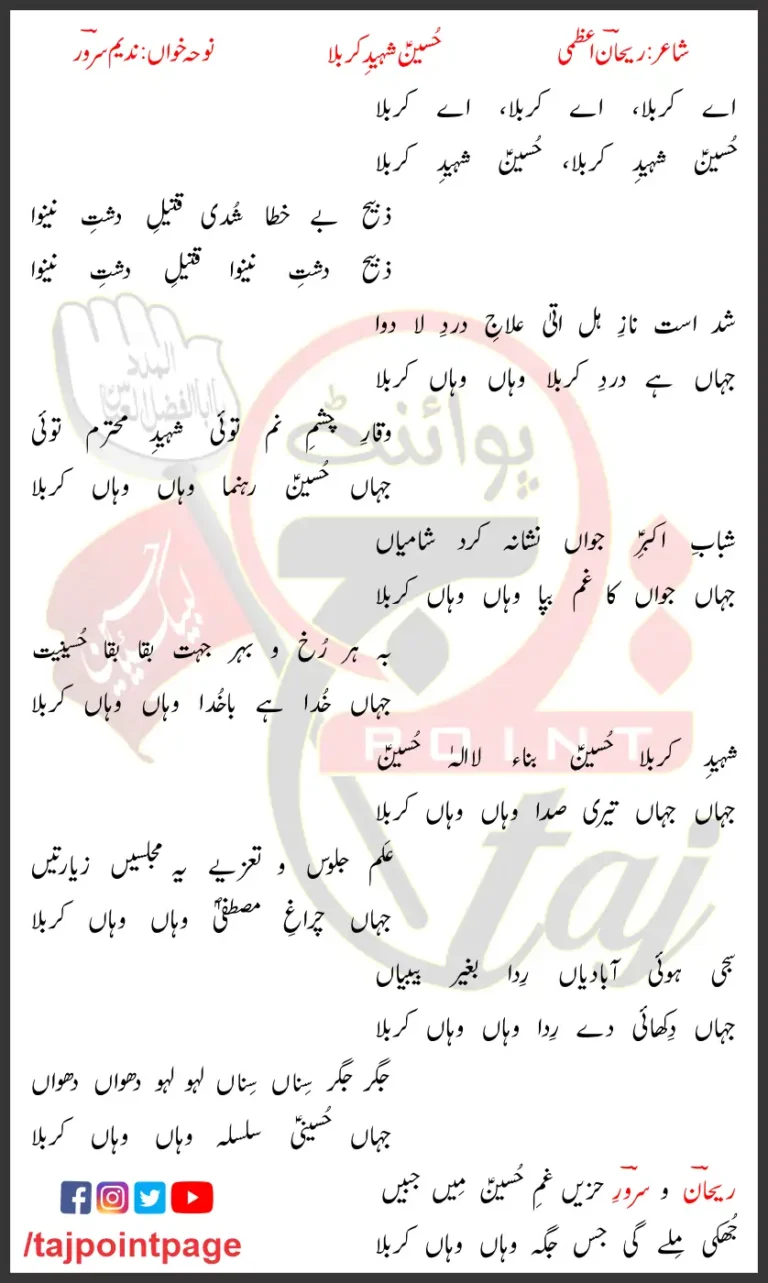 شاعر: ریحان اعظمی
حُسینؑ شہیدِ کربلا
نوحہ خواں: ندیم سرور
اے کربلا، اے کربلا، اے کربلا
حُسینؑ شہیدِ کربلا، حُسینؑ شہیدِ کربلا
ذبیح بے خطا شُدی قتیلِ دشتِ نینوا
ذبیح دشتِ نینوا قتیلِ دشتِ نینوا
شد است نازِ ہل اتیٰ علاجِ دردِ لا دوا
جہاں ہے دردِ کربلا وہاں وہاں کربلا
وقارِ چشمِ نم توئی شہیدِ محترم توئی
جہاں حُسینؑ رہنما وہاں وہاں کربلا
شبابِ اکبرِؑ جواں نشانہ کرد شامیاں
جہاں جواں کا غم بپا وہاں وہاں کربلا
بہ ہر رُخ و بہر جہت بقا بقا حُسینیت
جہاں خُدا ہے باخُدا وہاں وہاں کربلا
شہیدِ کربلا حُسینؑ بناء لاالہٰ حُسینؑ
جہاں جہاں تیری صدا وہاں وہاں کربلا
علَم جلوس و تعزیے یہ مجلسیں زیارتیں
جہاں چراغِ مصطفیٰؐ وہاں وہاں کربلا
سجی ہوئی آبادیاں رِدا بغیر بیبیاں
جہاں دِکھائی دے رِدا وہاں وہاں کربلا
جگر جگر سِناں سِناں لہو لہو دھواں دھواں
جہاں حُسینیؑ سلسلہ وہاں وہاں کربلا
ریحان و سرورِ حزیں غمِ حُسینؑ مِیں جبیں
جُھکی مِلے گی جس جگہ وہاں وہاں کربلا
/tajpointpage
المدد
یا اباالفضل العباس
لبیک یا حسین
پوائنٹ
تاج
POINT
taj